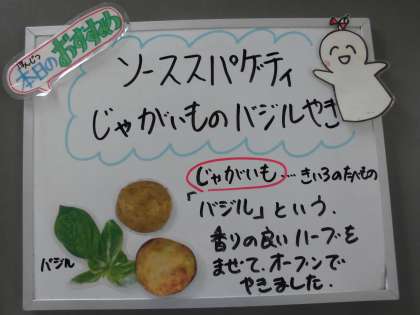 ほんじつ
本日の
おすすめ
ソーススパゲティ
じゃがいものバジルやき
じゃがいも…きいろのたべもの
「バジル」という、
香りの良いハーブを
まぜて、オーブンで
やきました.
バジル